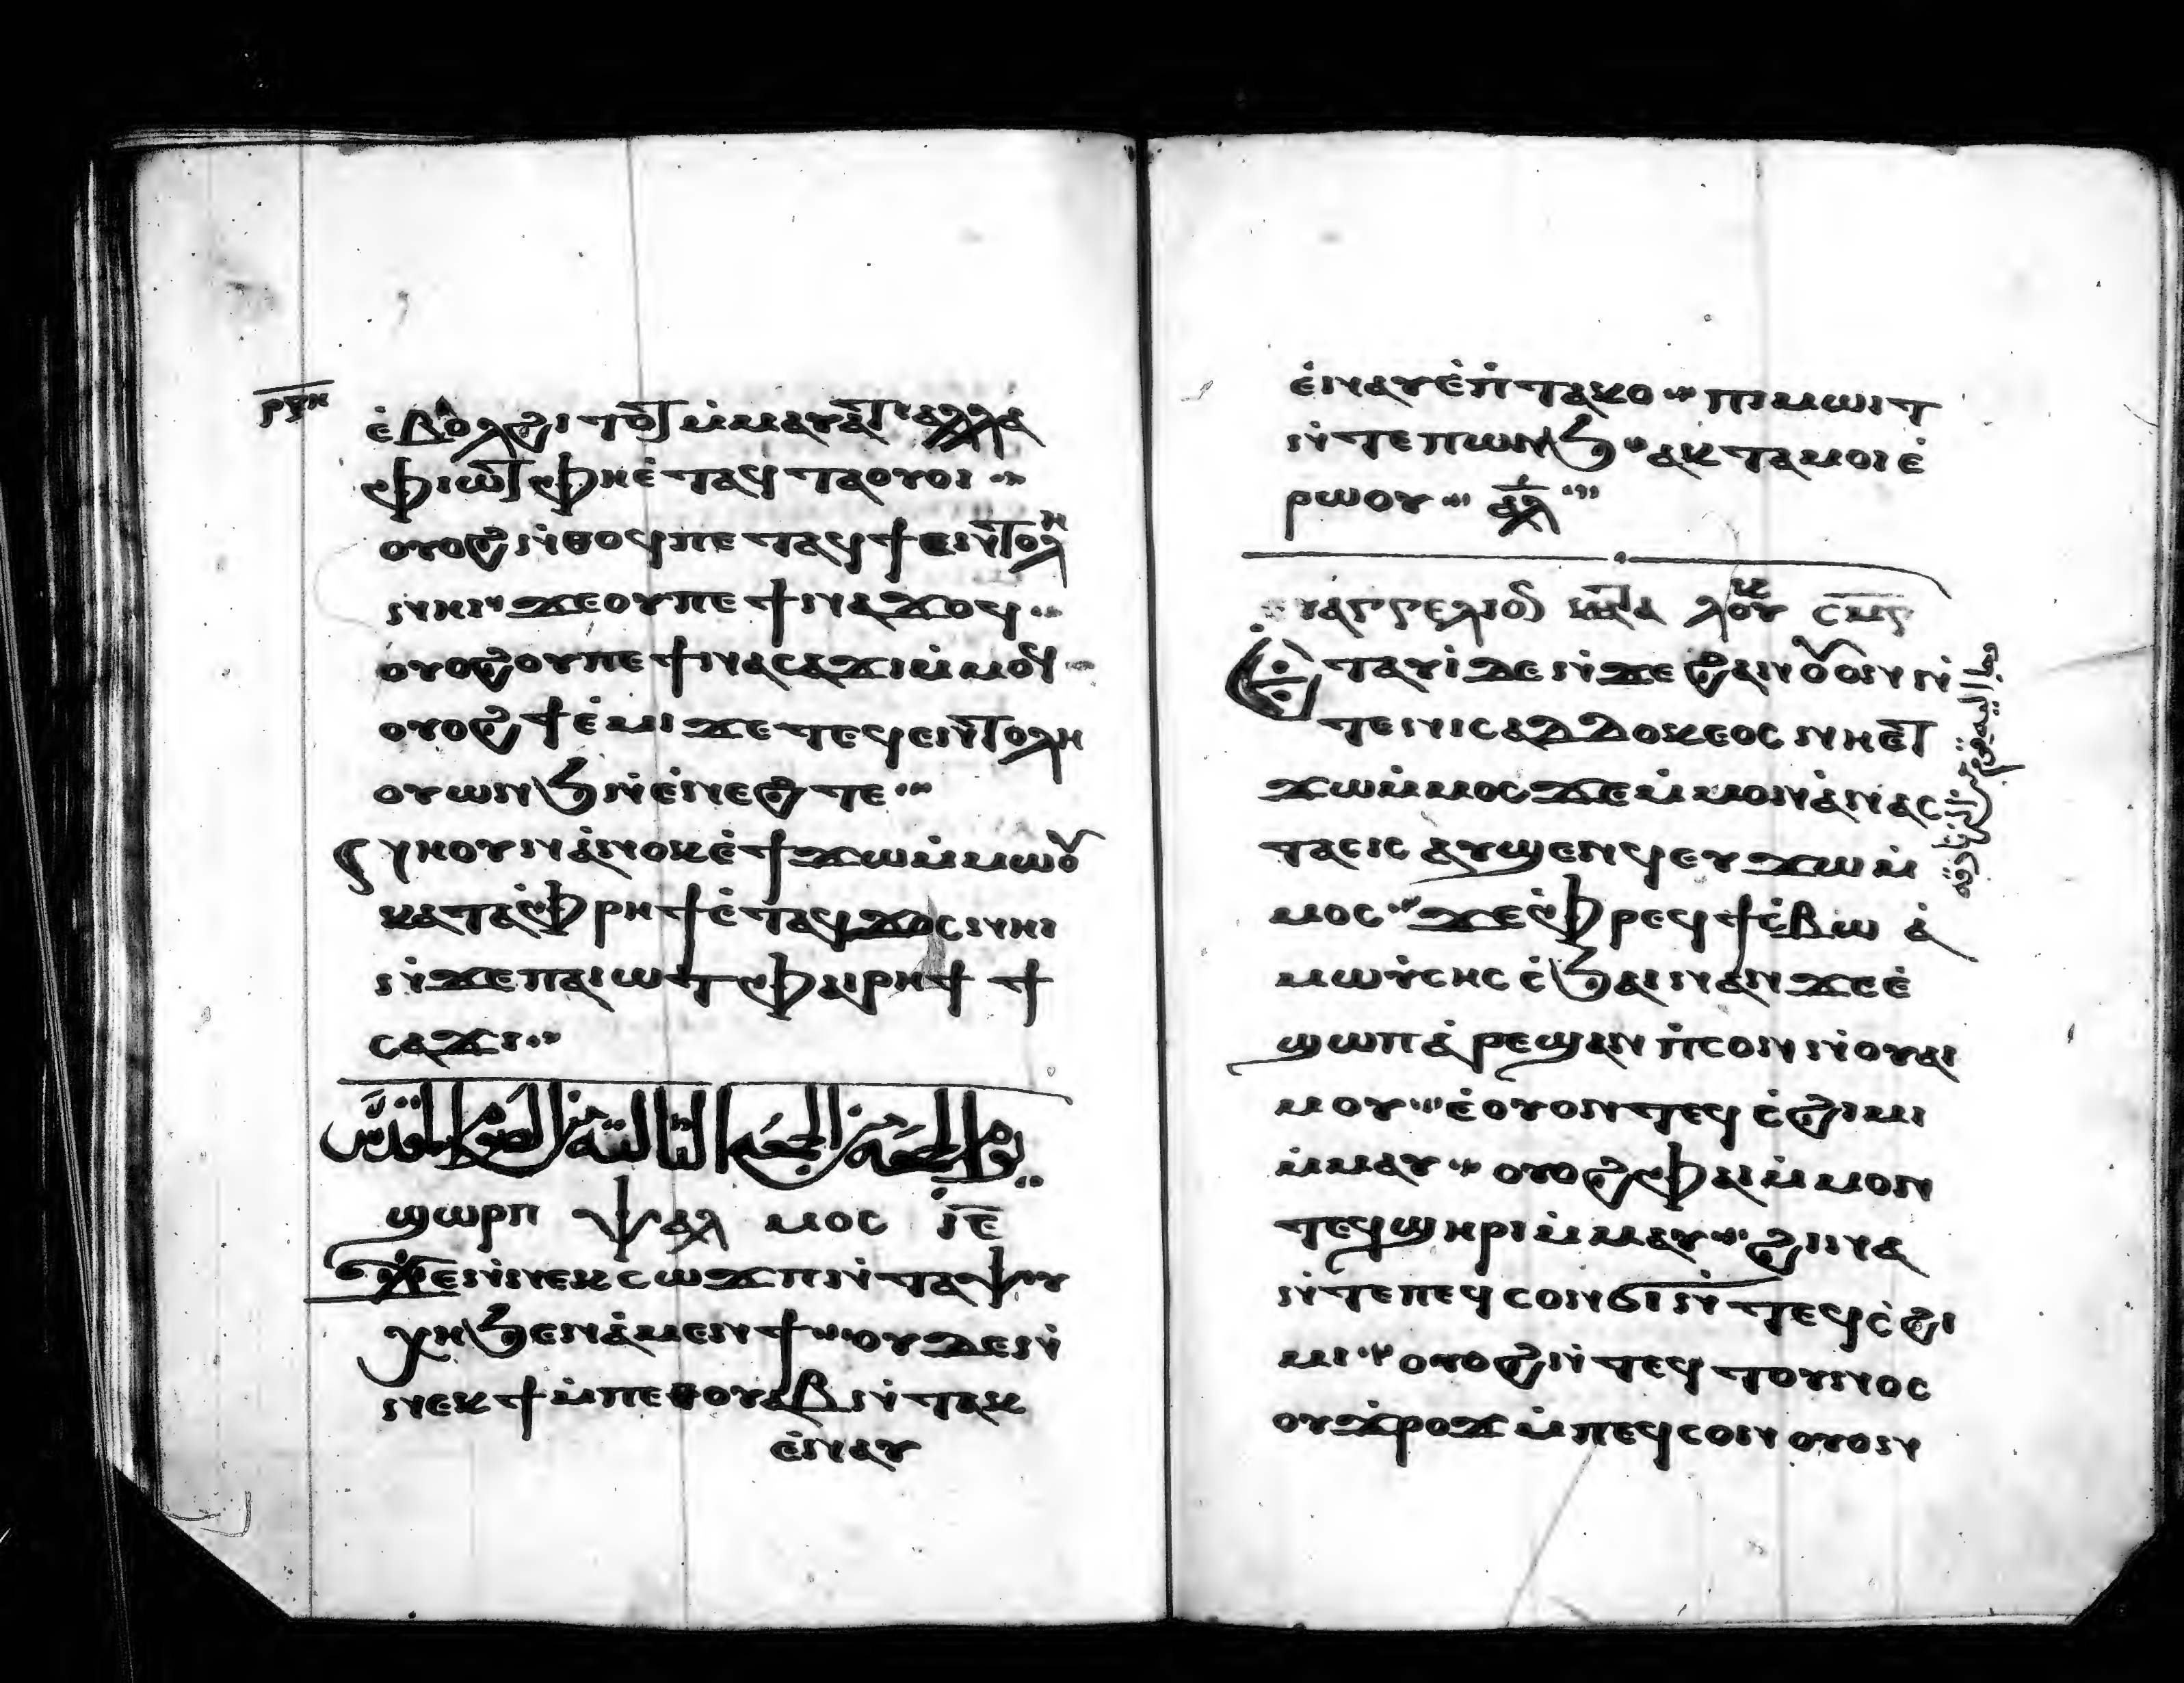 ⲣⲝⲏ
ⲉ̀ⲃⲟⲗϩⲓⲧⲟⲧ ⲙ̀ⲙⲁⲩⲁⲧ ⲁⲗⲗⲁ
ⲫⲓⲱⲧ ⲫⲏⲉ̀ⲧⲁϥⲧⲁⲟⲩⲟⲓ
ⲟⲩⲟϩ ⲛ̀ⲑⲟϥ ⲡⲉⲧⲁϥϯⲉⲛⲧⲟⲗⲏ
ⲛⲏⲓ ϫⲉ ⲟⲩ ⲡⲉϯⲛⲁϫⲟϥ
ⲟⲩⲟϩ ⲟⲩ ⲡⲉϯⲛⲁⲥⲁϫⲓ ⲙ̀ⲙⲟϥ
ⲟⲩⲟϩ ϯⲉ̀ⲙⲓ ϫⲉ ⲧⲉϥⲉⲛⲧⲟⲗⲏ
ⲟⲩⲱⲛϧ ⲛ̀ⲉ̀ⲛⲉϩ ⲧⲉ
ⲛⲏ ⲟⲩⲛ ⲁ̀ⲛⲟⲕ ⲉ̀ϯϫⲱ ⲙ̀ⲙⲱⲟⲩ
ⲕⲁⲧⲁ ⲫ̀ⲣⲏϯ ⲉ̀ⲧⲁϥϫⲟⲥ ⲛⲏⲓ
ⲛ̀ϫⲉ ⲡⲁⲓⲱⲧ ⲫⲁⲓ ⲣⲏϯ ϯ
ⲥⲁϫⲓ
يوم الجمعة من الجمعة الثالثة من الصوم المقدس
ϣⲱⲣⲡ ⲯⲁⲗⲙⲟⲥ ⲓⲉ
ϫⲉ ⲛ̀ⲛⲉⲕⲥⲱϫⲡ ⲛ̀ⲧⲁⲯⲩ
ⲭⲏ ϧⲉⲛ ⲁ̀ⲙⲉⲛϯ ⲟⲩⲇⲉ ⲛ̀
ⲛⲉⲕϯ ⲙ̀ⲡⲉⲑⲟⲩⲁⲃ ⲛ̀ⲧⲁⲕ
ⲉ̀ⲛⲁⲩ
ⲉ̀ⲛⲁⲩ ⲉ̀ⲡ̀ⲧⲁⲕⲟ ⲡⲓⲙⲱⲓⲧ
ⲛ̀ⲧⲉ ⲡⲱⲛϧ ⲁⲕⲧⲁⲙⲟⲓ ⲉ̀
ⲣⲱⲟⲩ ⲁⲗ
ⲩⲁⲅⲅⲉⲗⲓⲟⲛ ⲕⲁⲧⲁ ⲗⲟⲩⲕ
ⲉⲧⲁⲩⲓ̀ ⲇⲉ ⲛ̀ϫⲉ ϩⲁⲛⲟⲩⲟⲛ ⲛ̀
ⲧⲉ ⲛⲓⲥⲁⲇⲇⲟⲕⲉⲟⲥ ⲛⲏⲉⲧ
ϫⲱ ⲙ̀ⲙⲟⲥ ϫⲉ ⲙ̀ⲙⲟⲛ ⲁ̀ⲛⲁⲥ
ⲧⲁⲥⲓⲥ ⲁⲩϣⲉⲛϥ ⲉⲩϫⲱ ⲙ̀
ⲙⲟⲥ ϫⲉ ⲫ̀ⲣⲉϥϯⲥ̀ⲃⲱ ⲁ̀
ⲙⲱⲩ̀ⲥⲏⲥ ⲥ̀ϧⲁⲓ ⲛⲁⲛ ϫⲉ ⲉ̀
ϣⲱⲡ ⲁ̀ⲣⲉϣⲁⲛ ⲡ̀ⲥⲟⲛ ⲛ̀ⲟⲩⲁⲓ
ⲙⲟⲩ ⲉ̀ⲟⲩⲟⲛⲧⲉϥ ⲥ̀ϩⲓⲙⲓ
ⲙ̀ⲙⲁⲩ ⲟⲩⲟϩ ⲫⲁⲓ ⲙ̀ⲙⲟⲛ
ⲧⲉϥ ϣⲏⲣⲓ ⲙ̀ⲙⲁⲩ ϩⲓⲛⲁ
ⲛ̀ⲧⲉ ⲡⲉϥⲥⲟⲛ ϭⲓ ⲛ̀ⲧⲉϥⲥ̀ϩⲓ
ⲙⲓ ⲟⲩⲟϩ ⲛ̀ⲧⲉϥⲧⲟⲩⲛⲟⲥ
ⲟⲩϫ̀ⲣⲟϫ ⲙ̀ⲡⲉϥⲥⲟⲛ ⲟⲩⲟⲛ